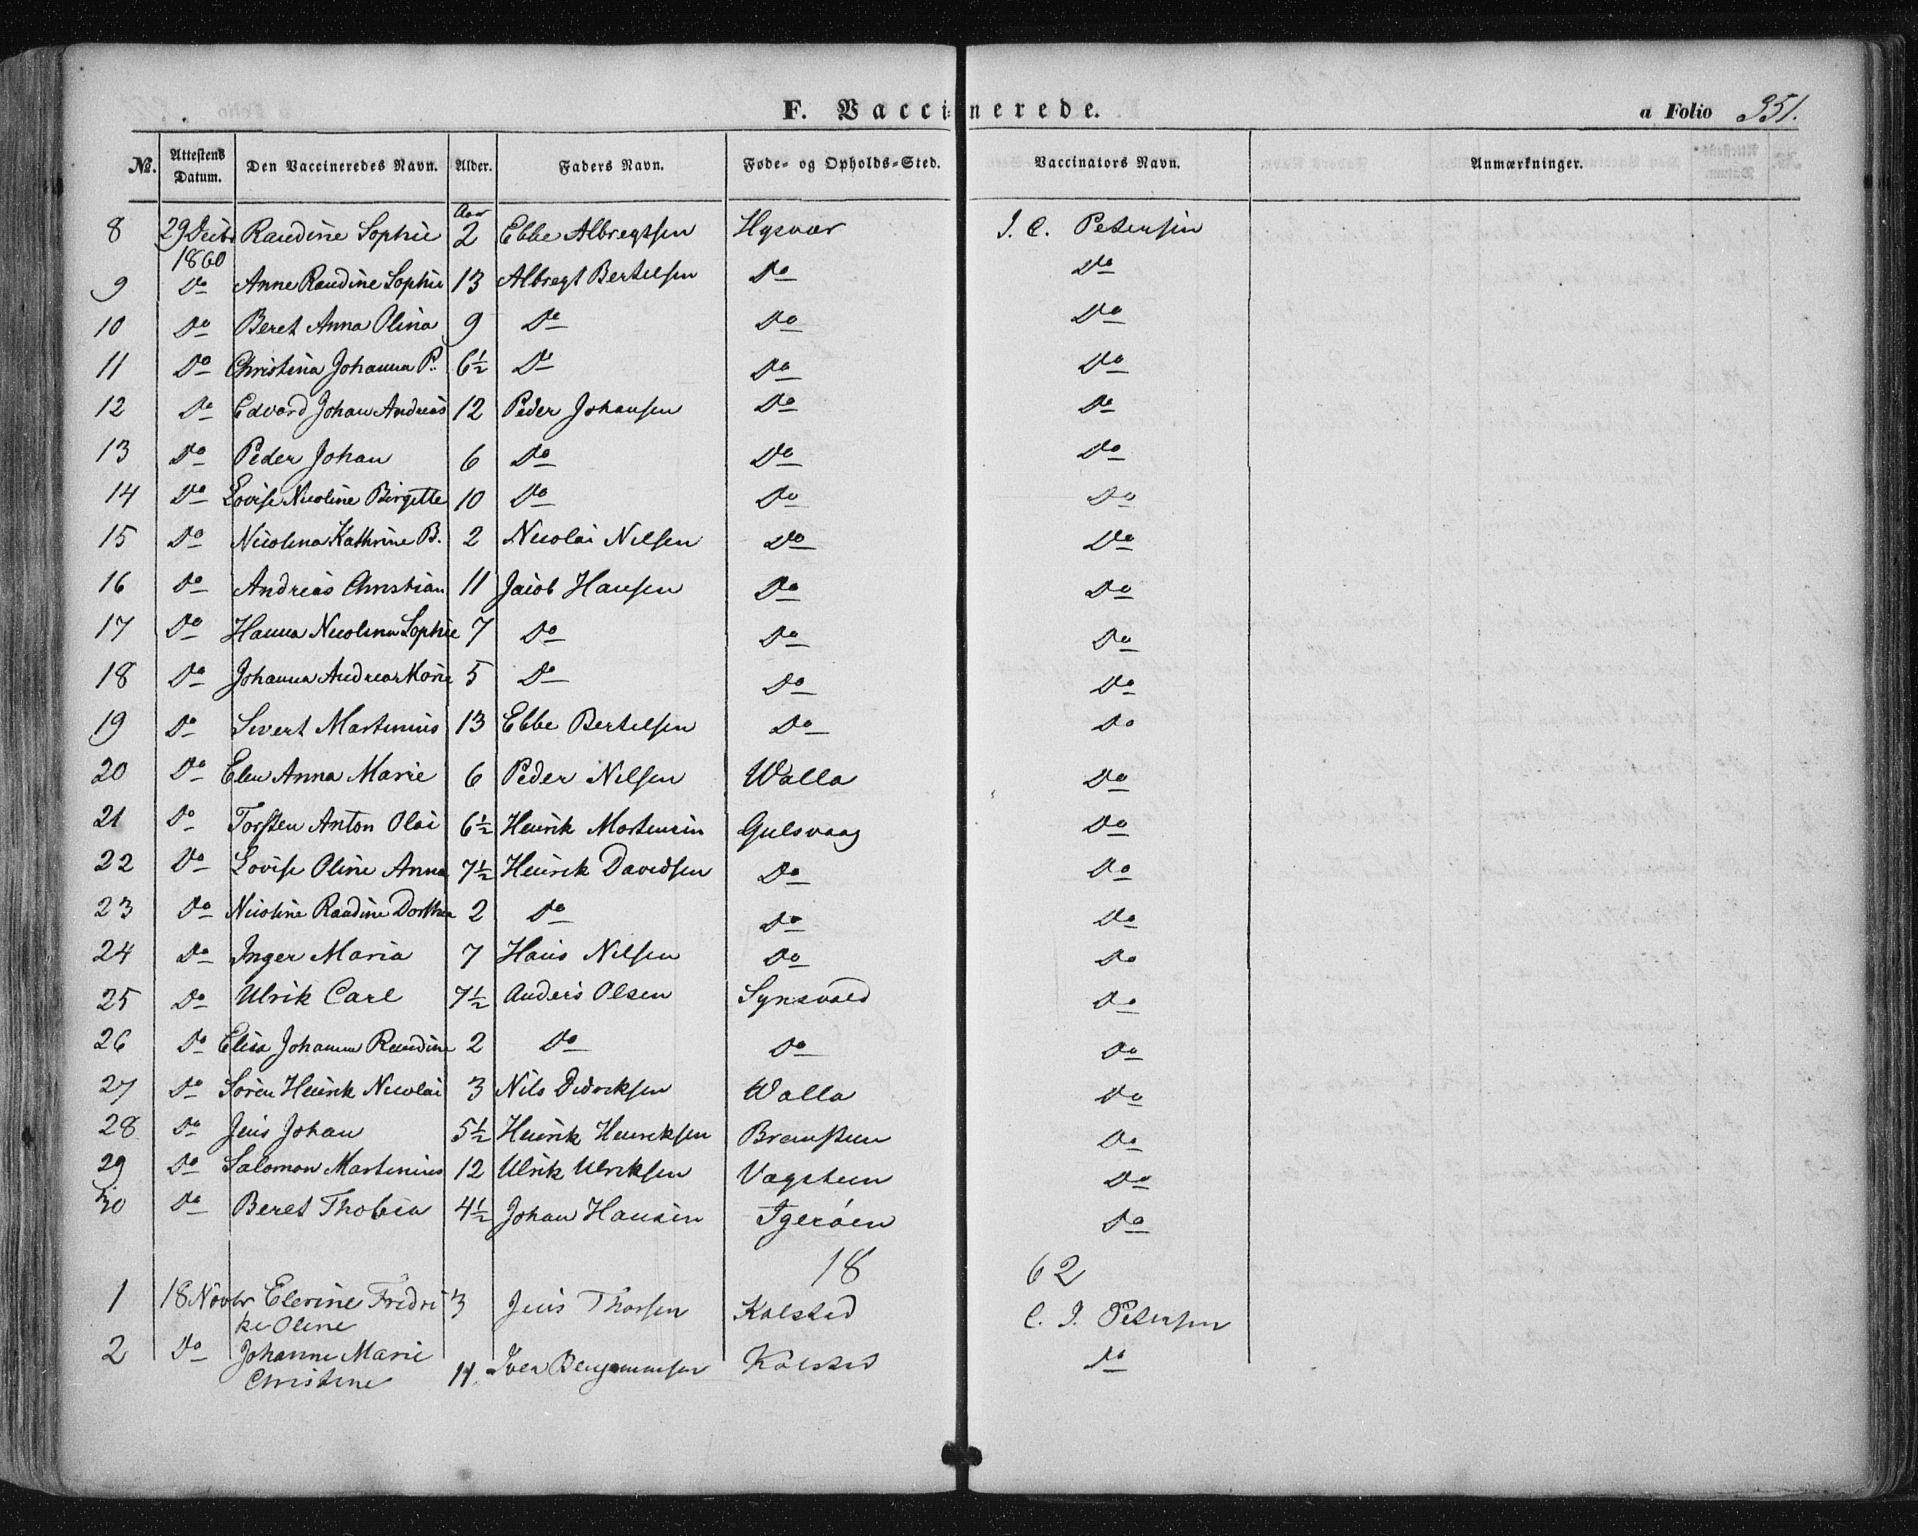 F. Vaccinerede.
a Folio 351.
No. Attestens Datum. Den Vaccineredes Navn. Alder. Faders Navn. Føde- og Opholds-Sted. Vaccinators Navn. Anmærkninger.
8 29 Decbr 1860 Raudine Sophie Aar 2 Ebbe Albregtsen Hysvær J. C. Petersen
9 Do Anne Raudine Sophie 13 Albregt Bertelsen Do Do
10 Do Beret Anna Olina 9 Do Do Do
11 Do Christina Johanna P. 6½ Do Do Do
12 Do Edvard Johan Andreas 12 Peder Johansen Do Do
13 Do Peder Johan 6 Do Do Do
14 Do Lovise Nicoline Birgitte 10 Do Do Do
15 Do Nicolina Kathrine B. 2 Nicolai Nilsen Do Do
16 Do Andreas Christian 11 Jacob Hansen Do Do
17 Do Hanna Nicolina Sophie 7 Do Do Do
18 Do Johanna Andrea Marie 5 Do Do Do
19 Do Sivert Martinius 13 Ebbe Bertelsen Do Do
20 Do Elen Anna Marie 6 Peder Nilsen Walla Do
21 Do Torsten Anton Olai 6½ Henrik Mortensen Gulsvaag Do
22 Do Lovise Oline Anna 7½ Henrik Davidsen Do Do
23 Do Nicoline Raudine Dorthea 2 Do Do Do
24 Do Inger Maria 7 Hans Nilsen Do Do
25 Do Ulrik Carl 7½ Anders Olsen Synsvold Do
26 Do Elisa Johanna Raudine 2 Do Do Do
27 Do Sören Henrik Nicolai 3 Nils Didriksen Walla Do
28 Do Jens Johan 5½ Henrik Henriksen Bremsteen Do
29 Do Salomon Martinius 12 Ulrik Ulriksen Vægsteen Do
30 Do Beret Thobia 4½ Johan Hansen Igeröen Do
18 62
1 18 Novbr Elerine Fredri 3 Jens Thorsen Kolsted C. J. Petersen
ke Oline
2 Do Johanne Marie 11. Iver Benjaminsen Kolsted Do
Christine